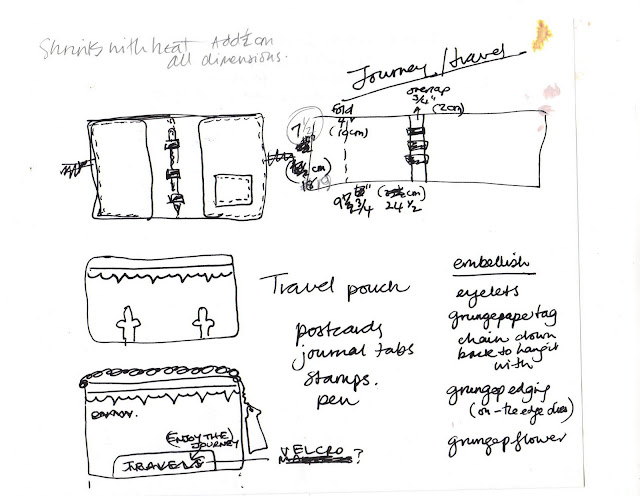 Shrinks with heat Add ½ on
all dimensions.
Journey/travel
overlap
3/4"
(2cm)
fold
4"
(10cm)
7½"
cm)
19
9 3/4
cm)
24½
Travel pouch
postcards
journal tabs
stamps.
pen
embellish
eyelets
grungepapertag
chain down
back to hang it
with
grungep edging
(on-the edge dies)
grungepflower
ENJOY THE
JOURNEY
TRAVELS
VELCRO
?